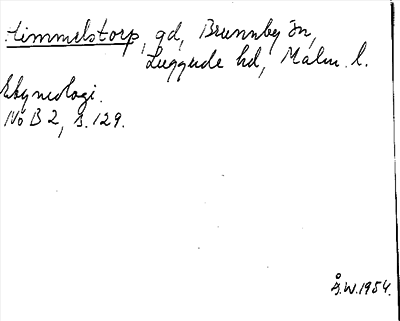 Himmelstorp, gd, Brunnby sn,
Luggude hd, Malm. l.
Etymologi.
NoB 2, s. 129.
Å.W. 1954.